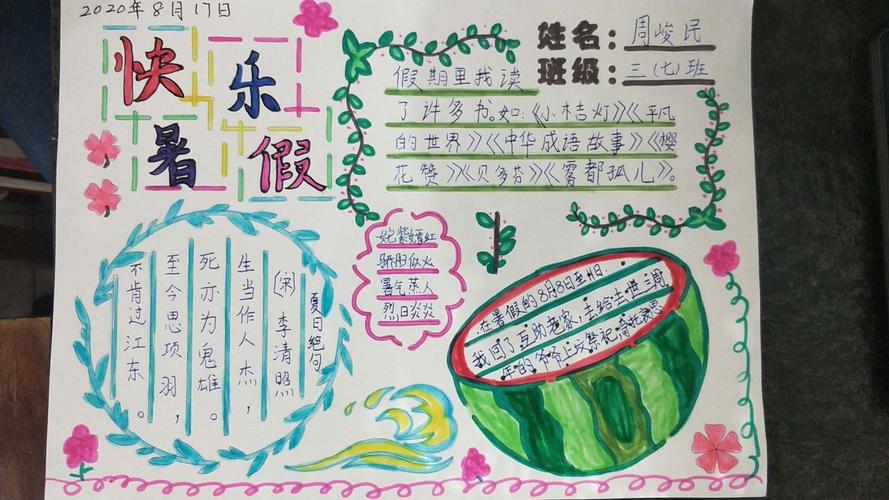 2020年8月17日
快乐
暑假
姓名：周峻民
班级：三(七)班
假期里我读
了许多书。如：《小桔灯》《平凡
的世界》《中华成语故事》《樱
花赞》《贝多芬》《雾都孤儿》。
姹紫嫣红
骄阳似火
暑气蒸人
烈日炎炎
夏日绝句
(宋)李清照
生当作人杰，
死亦为鬼雄。
至今思项羽，
不肯过江东。
在暑假的8月8日至11日，
我回了互助老家，去给去世三周
年的爷爷上坟祭祀，寄托哀思